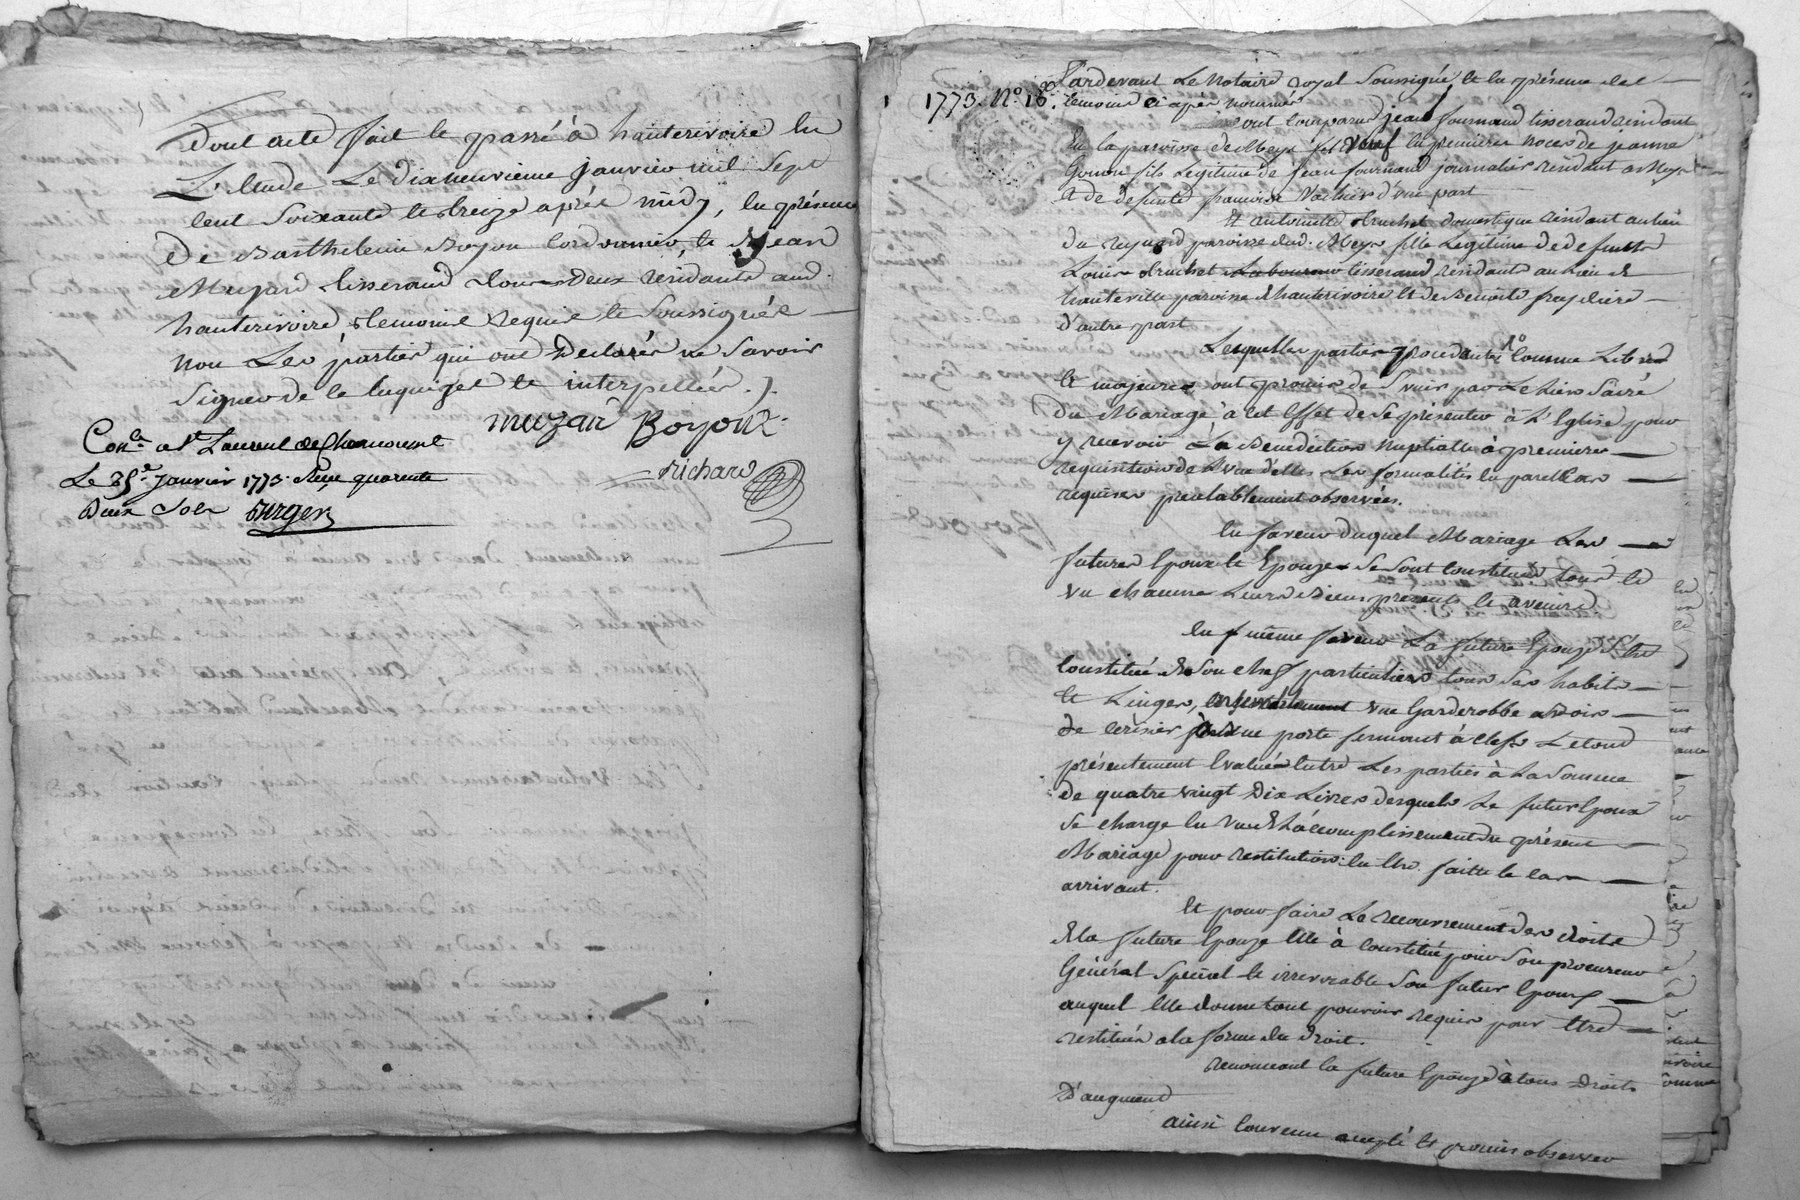 Dont acte fait et passé à hauterivoire en
L'Etude Le dixneuvieme janvier mil Sept
Cent Soixante et treize après midy, en présence
de Barthelemi Boyou Cordonnier, et Jean
Muzard tisserand tous deux résidants aud.
hauterivoire, témoins requis et Soussignés
non Les parties qui ont declarés ne Savoir
Signer de ce enquises et interpellées./.
muzar Boyou
richard
Con.lé a St. Laurent de Chamousset
Le 25e. janvier 1773. Reçu quarente
Deux Sols Burger
1773. No. 18.
Pardevant Le Notaire royal Soussigné et en présence des
temoins ci après nommés
ont comparu jean fournand tisserand résidant
En la paroisse de Meys veuf En premieres noces de jeanne
Gonon fils Légitime de jean fournand journalier résidant a Meys
et de defunte françoise Vachier d'une part
Et antoinette Bruchet domestique résidant au lieu
du reynard paroisse dud. Meys fille Légitime de defunt
Louis Bruchet Laboureur tisserand résidants au lieu de
hauteville paroisse d'hauterivoire et de Benoite
d'autre part
Lesquelles parties procedantes Comme Libres
et majeures ont promis de S'unir par Le Lien Sacré
du Mariage à cet Effet de Se présenter à L'Eglise pour
y recevoir La Benediction Nuptialle à premiere
requisition de L'un d'elles Les formalités En pareil Cas
requises prealablement observées.
En faveur duquel Mariage Les
futures Epoux et Epouze Se Sont Constitués tous et
un chacuns Leurs Biens présents et avenirs
En même faveur La future Epouze S'est
Constituée de Son chef particulier tous Ses habits
et Linges, une Garderobbe a bois
de Cerisier à une porte fermant à Clefs Le tout
présentement Evalué Entre Les parties à La Somme
de quatre vingt Dix Livres desquels Le futur Epoux
Se charge En vue de L'accomplissement du présent
Mariage pour restitution En Etre faitte le cas
arrivant.
Et pour faire Le recouvrement des droits
de La future Epouze Elle à Constitué pour Son procureur
Général Spécial et irrevocable Son futur Epoux
auquel Elle donne tout pouvoir requis pour Etre
restituée a la forme du droit.
renonceant la future Epouze à tous Droits
D'augment
ainsi Convenu accepté et promis observer